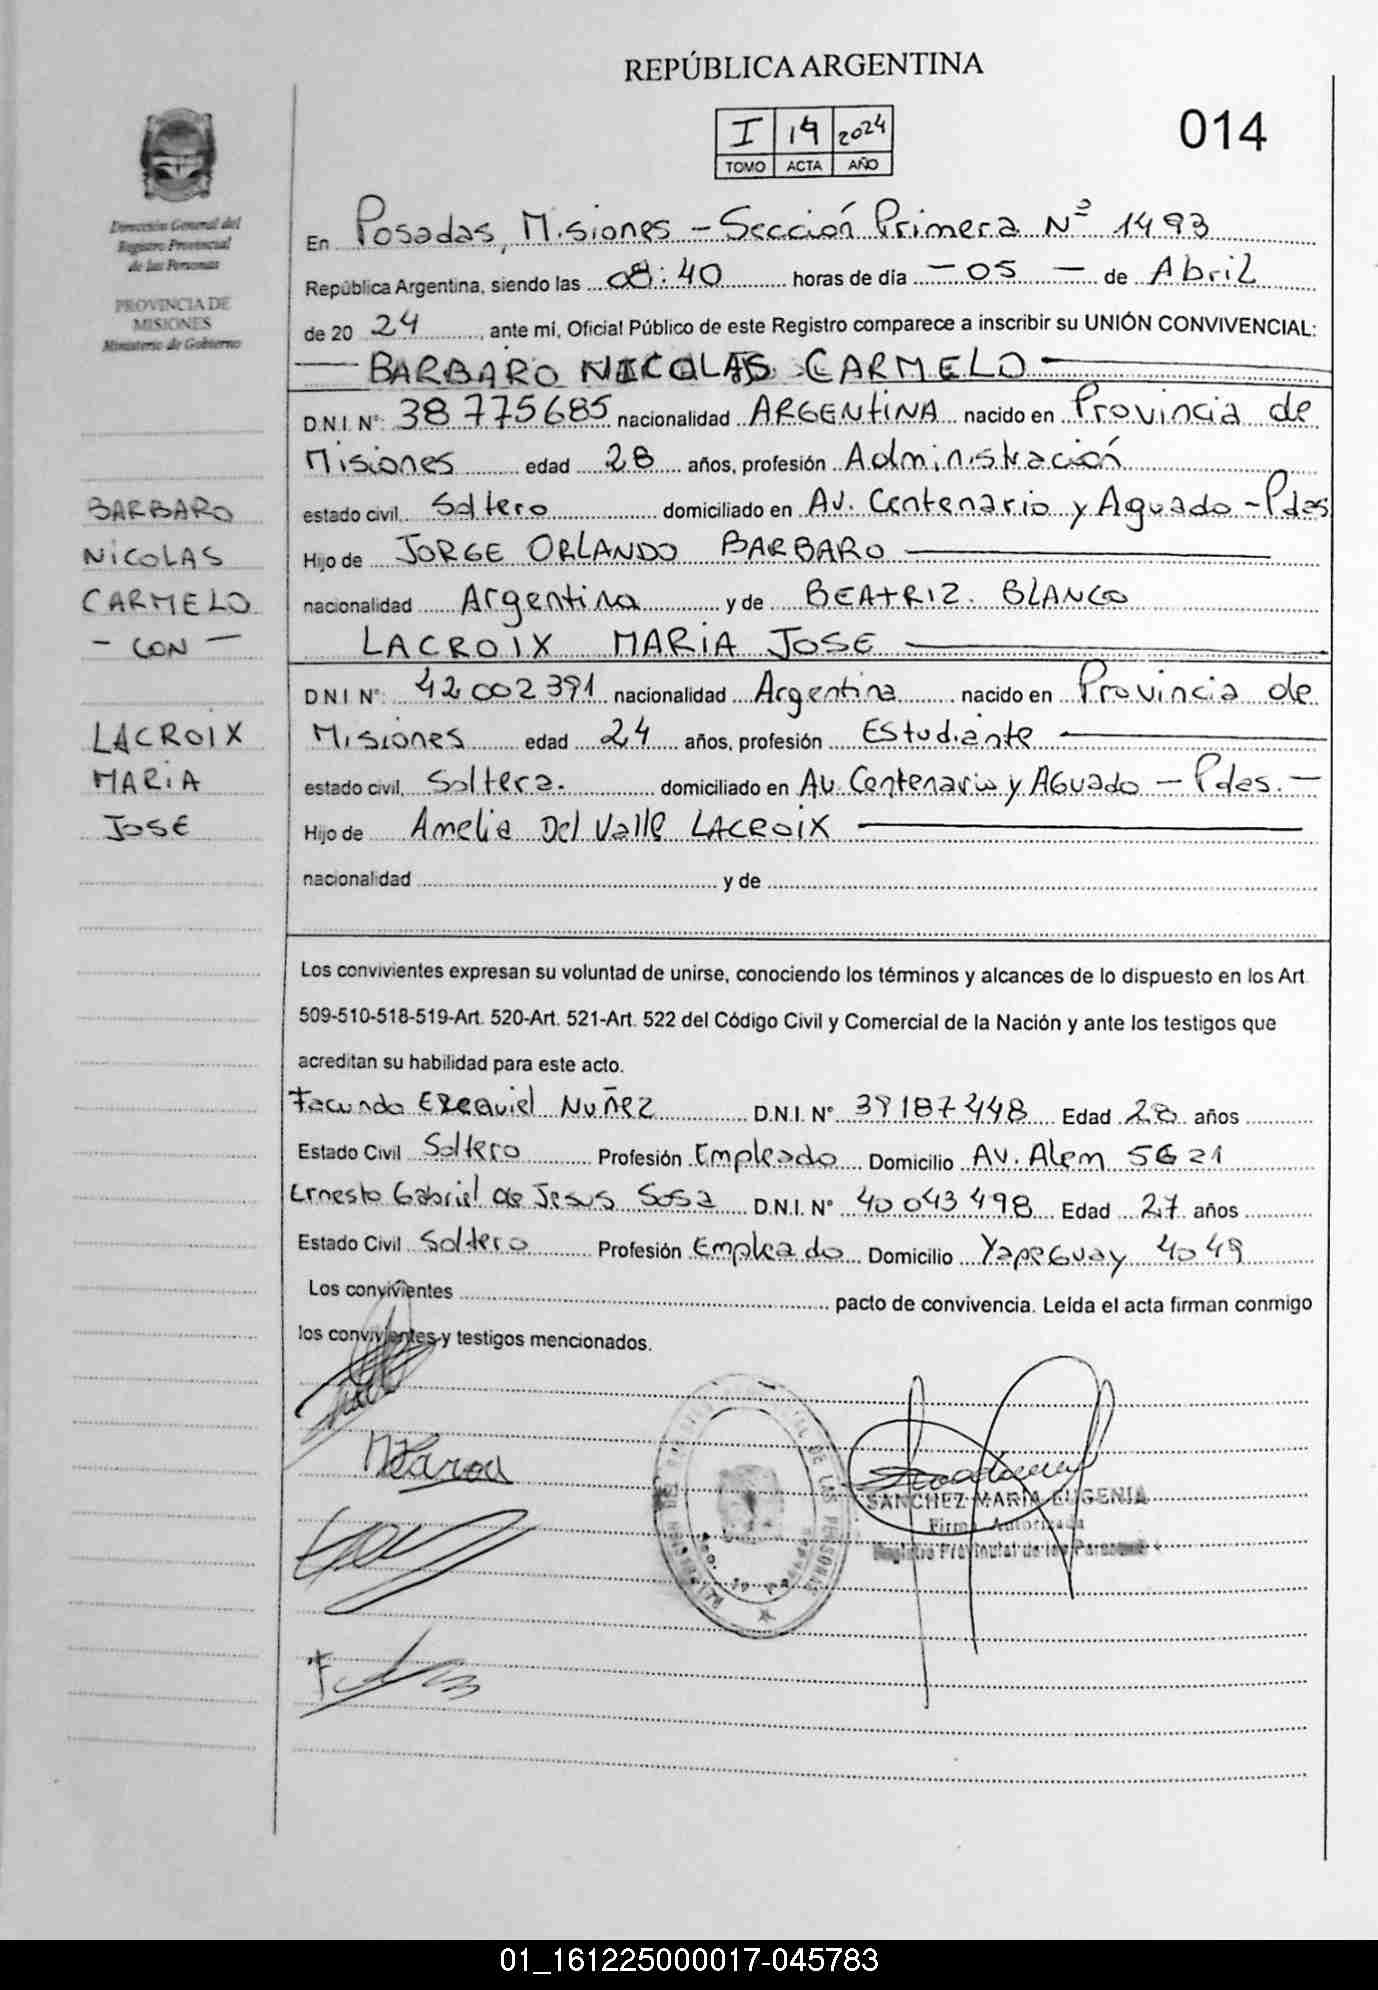 REPÚBLICA ARGENTINA
I 14 2024
TOMO ACTA AÑO
014
Dirección General del
Registro Provincial
de las Personas
PROVINCIA DE
MISIONES
Ministerio de Gobierno
En Posadas, Misiones - Sección Primera Nº 1493
República Argentina, siendo las 08:40 horas de día - 05 - de Abril
de 2024, ante mi, Oficial Público de este Registro comparece a inscribir su UNIÓN CONVIVENCIAL:
BARBARO NICOLAS CARMELO
D.N.I. Nº: 38775685 nacionalidad ARGENTINA nacido en Provincia de
Misiones edad 28 años, profesión Administración
estado civil Soltero domiciliado en Av. Centenario y Aguado - Pdas
Hijo de JORGE ORLANDO BARBARO
nacionalidad Argentina y de BEATRIZ BLANCO
LACROIX MARIA JOSE
D N I Nº 42002391 nacionalidad Argentina nacido en Provincia de
Misiones edad 24 años, profesión Estudiante
estado civil, Soltera. domiciliado en Av. Centenario y Aguado - Pdas. -
Hijo de Amelia Del Valle LACROIX
nacionalidad y de
BARBARO
NICOLAS
CARMELO
- CON -
LACROIX
MARIA
JOSE
Los convivientes expresan su voluntad de unirse, conociendo los términos y alcances de lo dispuesto en los Art.
509-510-518-519-Art. 520-Art. 521-Art. 522 del Código Civil y Comercial de la Nación y ante los testigos que
acreditan su habilidad para este acto.
Facundo Ezequiel Nuñez D.N.I. Nº 39187448 Edad 28 años
Estado Civil Soltero Profesión Empleado Domicilio Av. Alem 5621
Ernesto Gabriel de Jesus Sosa D.N.I. Nº 40043498 Edad 27 años
Estado Civil Soltero Profesión Empleado Domicilio Yapeguay 4049
Los convivientes pacto de convivencia. Leída el acta firman conmigo
los convivientes y testigos mencionados.
SANCHEZ MARIA EUGENIA
Firma Autorizada
Registro Provincial de las Personas
01_161225000017-045783